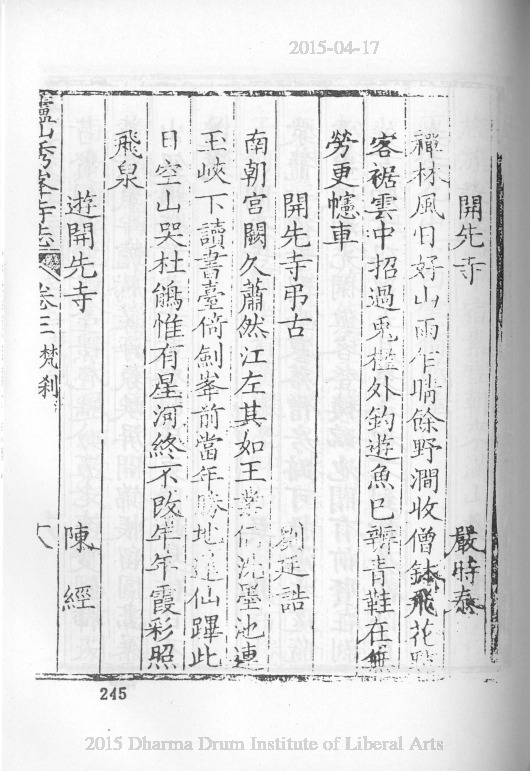 2015-04-17
開先寺 嚴時泰
禪林風日好山雨乍晴餘野澗收僧鉢飛花
客裾雲中招過兎檻外釣遊魚已辦青鞋在無
勞更幰車
開先寺弔古 劉廷誥
南朝宮闕久蕭然江左其如王業 洗墨池連
玉峽下讀書臺倚劍峯前當年勝地 仙蹕此
日空山哭杜鵑惟有星河終不改年年霞彩照
飛泉
遊開先寺 陳經
廬山秀峯寺志 卷三 梵刹 六
245
2015 Dharma Drum Institute of Liberal Arts